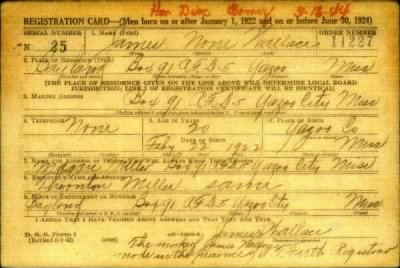 Hon Disc 9-18-44
REGISTRATION CARD—(Men born on or after January 1, 1922 and on or before June 30, 1924)
SERIAL NUMBER 1. NAME (Print) ORDER NUMBER
N 25 James None Wallace 11227
2. PLACE OF RESIDENCE (Print)
Box 91 R.F.D-5 Yazoo Miss
(THE PLACE OF RESIDENCE GIVEN ON THE LINE ABOVE WILL DETERMINE LOCAL BOARD
JURISDICTION; LINE 2 OF REGISTRATION CERTIFICATE WILL BE IDENTICAL)
3. MAILING ADDRESS
Box 91 R.F.D-5 Yazoo City Miss
4. TELEPHONE 5. AGE IN YEARS 6. PLACE OF BIRTH
None 20 Yazoo Co
DATE OF BIRTH
Feby 22 1922 Miss
7. NAME AND ADDRESS OF PERSON WHO WILL ALWAYS KNOW YOUR ADDRESS
Miller Box 91 Yazoo City Miss
8. EMPLOYER'S NAME AND ADDRESS
Thornton Miller same
9. PLACE OF EMPLOYMENT OR BUSINESS
Box 91 Yazoo City Miss
I AFFIRM THAT I HAVE VERIFIED ABOVE ANSWERS AND THAT THEY ARE TRUE.
D. S. S. Form 1
(Revised 6-1-42) (over) James Wallace
The mark of James Wallace
made in the presence Faith Registrar